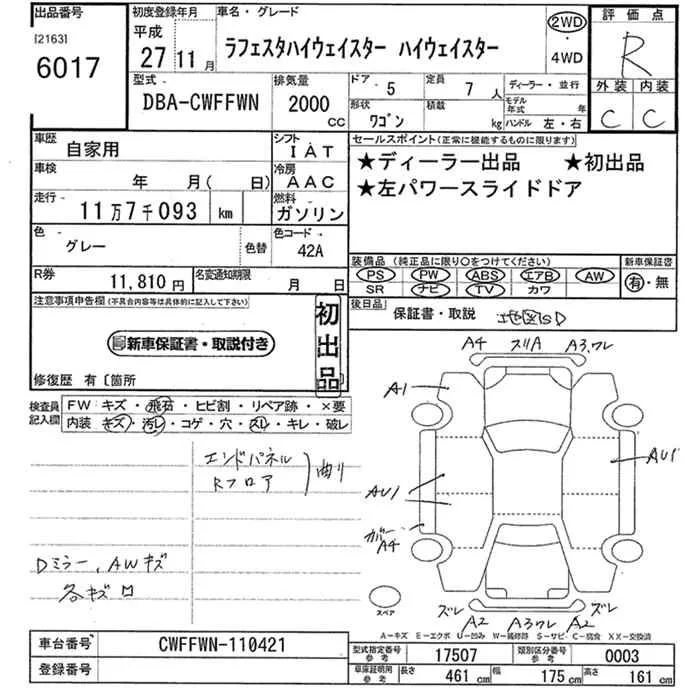 出品番号
[2163]
6017
初度登録年月
平成
27 11月
車名・グレード
ラフェスタハイウェイスター ハイウェイスター
2WD
・
4WD
評価点
R
外装 内装
C C
型式
DBA-CWFFWN
排気量
2000
CC
ドア - 5
定員 7 人
ディーラー・並行
形状 ワゴン
積載 kg
モデル年式 年
ハンドル 左・右
車歴 自家用
シフト IAT
車検 年 月( 日)
冷房 AAC
走行 11万7千093 km
燃料 ガソリン
色 グレー
色替
色コード 42A
R券 11,810円
名変通知期限 月 日
セールスポイント(正常に機能するものに限ります)
★ディーラー出品 ★初出品
★左パワースライドドア
装備品(純正品に限り○をつけてください)
新車保証書
PS PW ABS エアB AW
有・無
SR ナビ TV カワ
後日品
保証書・取説 地図SD
注意事項申告欄(不具合内容等は具体的に記入して下さい)
新車保証書・取説付き
初出品
修復歴 有〔箇所
検査員記入欄
FW キズ・飛石・ヒビ割・リペア跡・×要
内装 キズ・汚レ・コゲ・穴・スレ・キレ・破レ
エンドパネル
Rフロア
曲り
Dミラー,AWキズ
各キズ
A4 スリA A3,ワレ
A1
AU1
AU1
カバー
A4
スペア
ズレ ズレ
A2 A3ワレ A2
A-キズ E-エクボ U-凹み W-補修跡 S-サビ C-腐食 XX-交換済
車台番号 CWFFWN-110421
登録番号
型式指定番号 参考 17507
類別区分番号 参考 0003
車庫証明用 参考 長さ 461 cm 幅 175 cm 高さ 161 cm